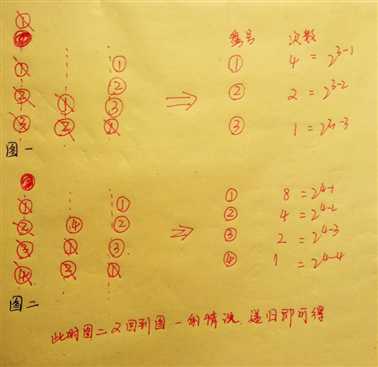 ①
① 编号 次数
① ① ① 4 = 2^3-1
② ② 2 = 2^3-2
② ① ③
③ ② ① ③ 1 = 2^3-3
图一
① ① ① 8 = 2^4-1
② ④ ② ② 4 = 2^4-2
③ ① ③ ③ 2 = 2^4-3
④ ② ① ④ 1 = 2^4-4
图二
此时图二又回到图一的情况,递归即可得